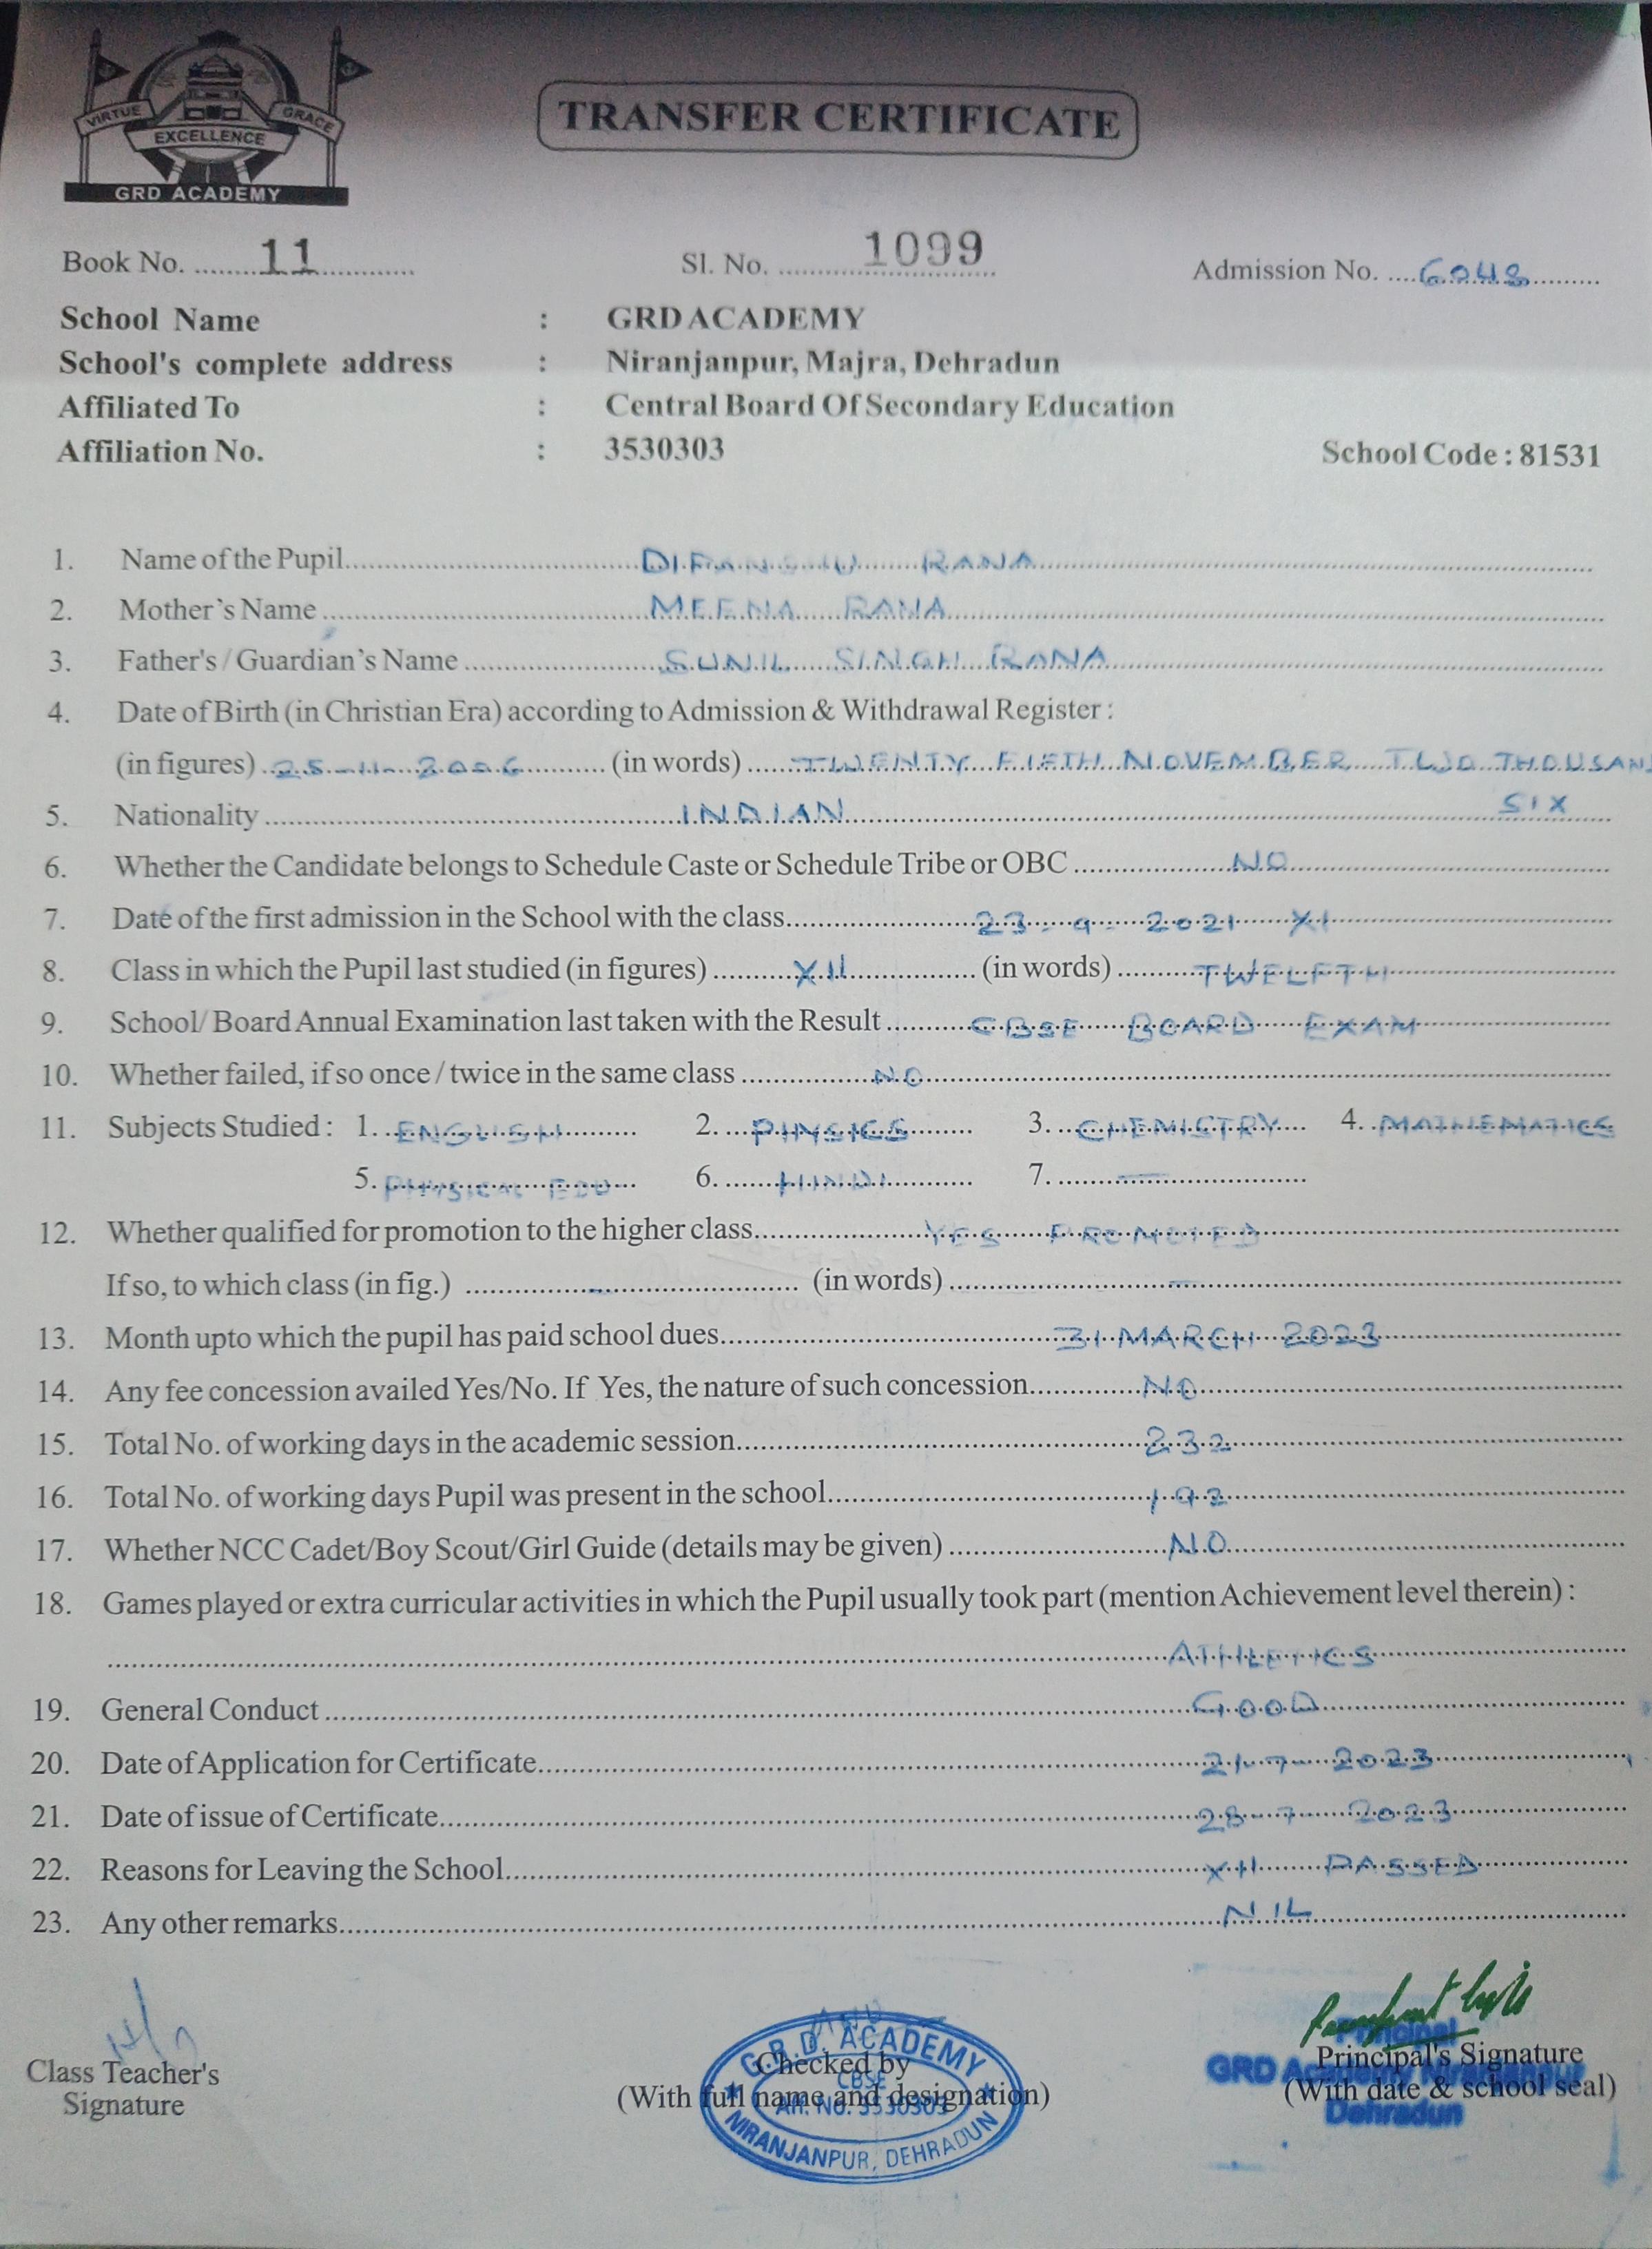 VIRTUE EXCELLENCE GRACE
GRD ACADEMY
TRANSFER CERTIFICATE
Book No. ........11.............. Sl. No. ............1099.... Admission No. ....6048..........
School Name : GRD ACADEMY
School's complete address : Niranjanpur, Majra, Dehradun
Affiliated To : Central Board Of Secondary Education
Affiliation No. : 3530303 School Code : 81531
1. Name of the Pupil.......... DIPANSHU RANA
2. Mother's Name .......... MEENA RANA
3. Father's / Guardian's Name .......... SUNIL SINGH RANA
4. Date of Birth (in Christian Era) according to Admission & Withdrawal Register :
(in figures) 25-11-2006 (in words) TWENTY FIFTH NOVEMBER TWO THOUSAND
SIX
5. Nationality .......... INDIAN
6. Whether the Candidate belongs to Schedule Caste or Schedule Tribe or OBC .......... NO
7. Date of the first admission in the School with the class.......... 23-9-2021 XI
8. Class in which the Pupil last studied (in figures) .......... XII (in words) .......... TWELFTH
9. School/ Board Annual Examination last taken with the Result .......... CBSE BOARD EXAM
10. Whether failed, if so once / twice in the same class .......... NO
11. Subjects Studied : 1. ENGLISH 2. PHYSICS 3. CHEMISTRY 4. MATHEMATICS
5. PHYSICAL EDU 6. HINDI 7. —
12. Whether qualified for promotion to the higher class.......... YES PROMOTED
If so, to which class (in fig.) .......... — (in words) .......... —
13. Month upto which the pupil has paid school dues.......... 31 MARCH 2023
14. Any fee concession availed Yes/No. If Yes, the nature of such concession.......... NO
15. Total No. of working days in the academic session.......... 232
16. Total No. of working days Pupil was present in the school.......... 192
17. Whether NCC Cadet/Boy Scout/Girl Guide (details may be given) .......... NO
18. Games played or extra curricular activities in which the Pupil usually took part (mention Achievement level therein) :
ATHLETICS
19. General Conduct .......... GOOD
20. Date of Application for Certificate.......... 21-7-2023
21. Date of issue of Certificate.......... 28-7-2023
22. Reasons for Leaving the School.......... XII PASSED
23. Any other remarks.......... NIL
Class Teacher's
Signature
G.R.D. ACADEMY
Checked by
CBSE
(With full name and designation)
Aff. No. 3530303
NIRANJANPUR, DEHRADUN
Principal
Principal's Signature
GRD
(With date & school seal)
Dehradun